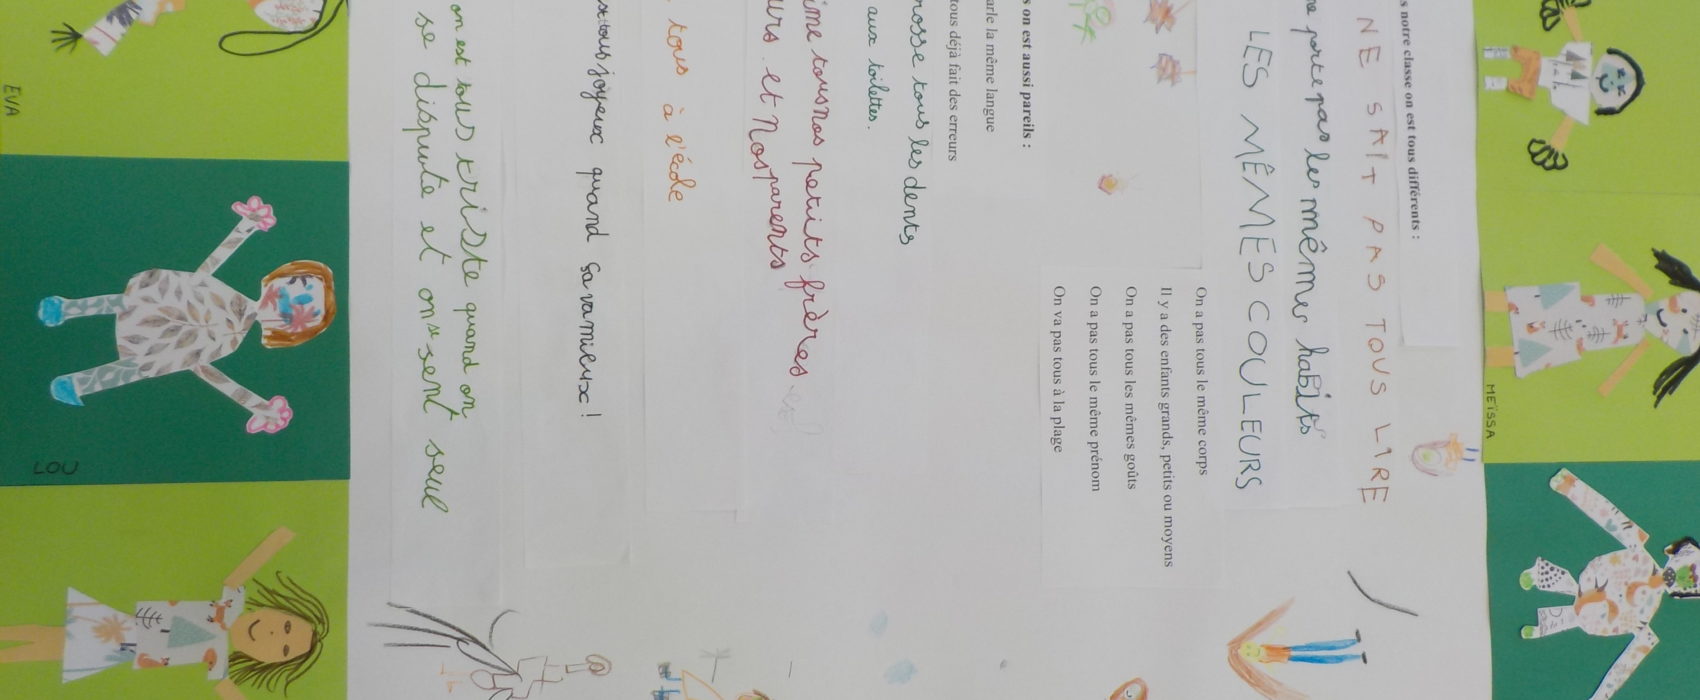 s notre classe on est tous différents :
NE SAIT PAS TOUS LIRE
ne porte pas les mêmes habits
LES MÊMES COULEURS
On a pas tous le même corps
Il y a des enfants grands, petits ou moyens
On a pas tous les mêmes goûts
On a pas tous le même prénom
On va pas tous à la plage
s on est aussi pareils :
arle la même langue
tous déjà fait des erreurs
rosse tous les dents
aux toilettes.
ime tous nos petits frères
urs et Nos parents
tous à l'école
est tous joyeux quand ça va mieux !
on est tous triste quand on
se dispute et on se sent seul
EVA
LOU
MEÏSSA